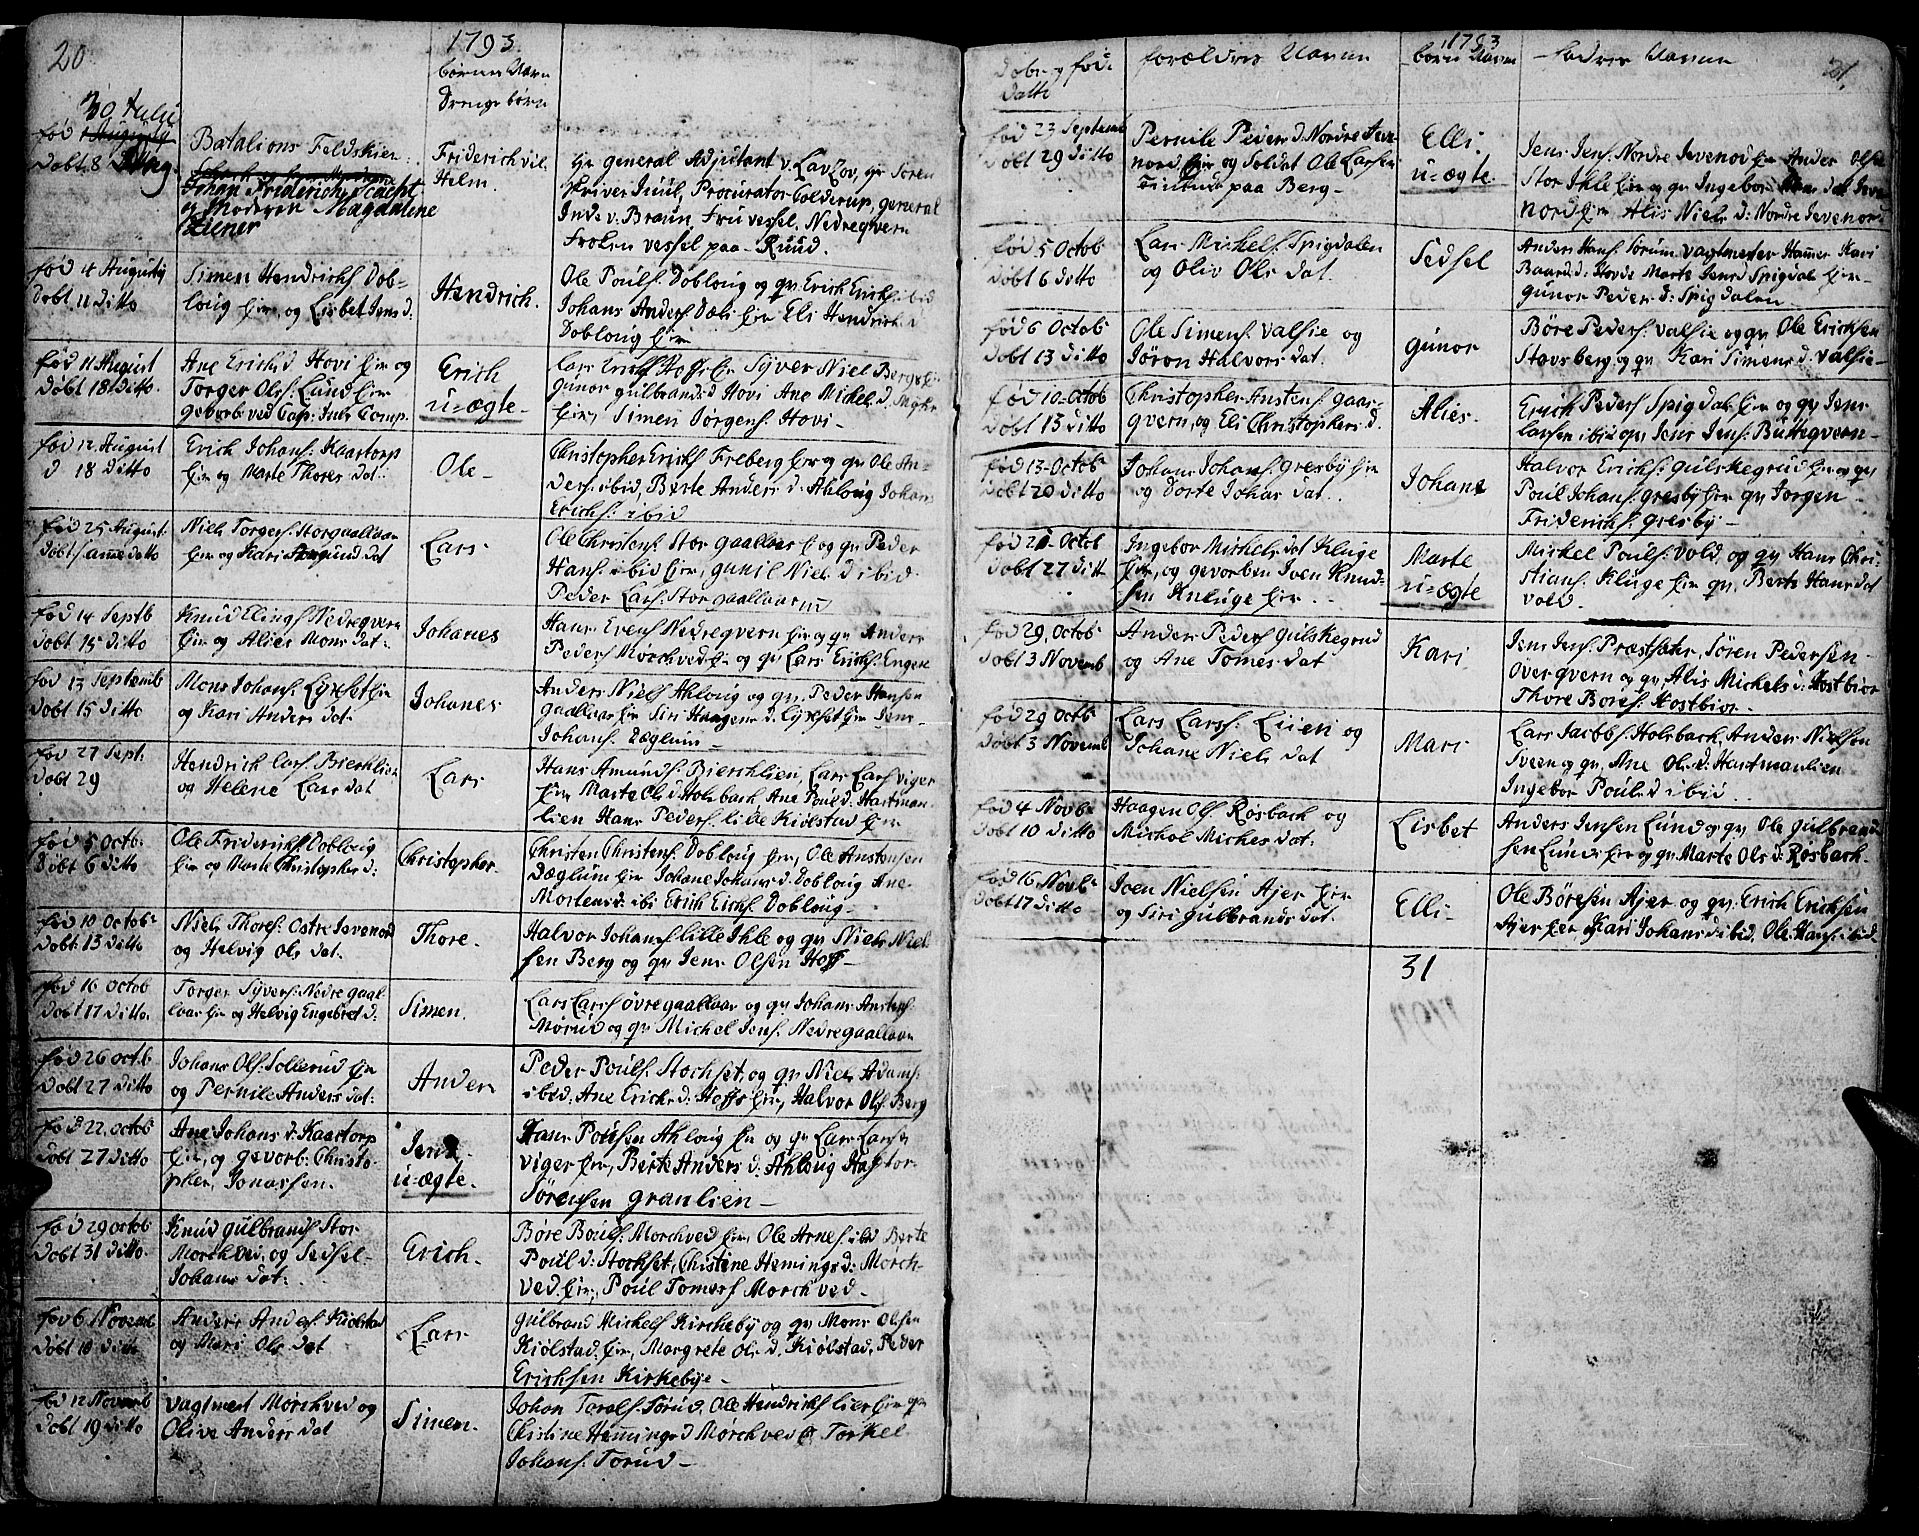 20
1793
børnes Navn
Drengebørn
30 Julii
fød 1 Augusty
Døbt 8
Batalions Feldskier
Johan Friderich Schacht
og Moderen Magdaline
Friderich vil
Helm.
Hr general Adjutant v. Lavzov, Hr Søren
skriver Juul, Procurator Colderup, general
Inde v. Braun, Fru vessel, Nedreqvern
Frølen vessel paa Ruud.
fød 4 Augusty
Døbt 11 Ditto
Simen Hendrichs. Dob-
loug hm, og Lisbet Jens d.
Hendrich.
Ole Pouls. Dobloug og qv. Erich Erichs. ibid
Johans Anders Dæli hm Eli Hendrichs d
Dobloug hm
fød 11 August
Døbt 18 Ditto
Ane Erichs d. Hovi hm og
Torger Ols. Lund hm
gevorb. ved Cap. Juls Comp.
Erich
u-ægte
Lars Erichs Hoffs hm Syver Niels Bergs hm
Gunor gulbrands d Hovi Ane Michels d.
hm, Simen Jørgens. Hovi
fød 12 August
d 18 Ditto
Erich Johans. Kaatorp
hm og Marte Thores dat.
Ole
Christopher Erichs Freberg hm og qv. Ole An-
ders. ibid, Berte Anders d. Ahloug Johans
Erichs. ibid
fød 25 August
Døbt samme Datto
Niels Torgers. Storgaallaar
hm og Kari Amund dat
Lars
Ole Christens. Stor gaallaar h og qv Peder
Hans. ibid hm, gunil Niels d ibid
Peder Lars. Storgaallaar
fød 14 Septb
Døbt 15 Ditto
Knud Elings Nedreqvern
hm og Alies Mons dat.
Johanes
Hans Evens Nedreqvern hm og qv Anders
Peders Mørchved hm og qv Lars Erichs. Engene
fød 13 Septemb
Døbt 15 Ditto
Mons Johans. Lyxset hm
og Kari Anders dat.
Johanes
Anders Niels Ahloug og qv. Peder Hansen
gaallaar hm Siri Haagens d. Lyxset hm Jens
Johans. Dæglum
fød 27 Sept.
Døbt 29
Hendrich Lars. Bierchlien
og Helene Lars dat
Lars
Hans Amunds. Bierchlien, Lars Lars viger
hm, Marte Ols d Holsbach, Ane Pouls d. Hartman
lien Hans Peders. lille Kiølstad hm
fød 5 Octo.
Døbt 6 ditto
Ole Friderichs Dobloug
hm og Marte Christopher d.
Christopher.
Christen Christens. Dobloug hm, Ole Anstensen
Dæglum hm Johane Johans d. Dobloug Ane
Mortens d. ibi Erich Erichs. Dobloug
fød 10 Octob
Døbt 13 Ditto
Niels Thores. Ostre Jevenord
og Helvig Ols dat.
Thore.
Halvor Johans lille Ihle og qv Niels Niel
sen Berg og qv Jens Olsen Hoff
fød 16 Octob
Døbt 17 Ditto.
Torger Syvers. Nedre gaal
laar hm og Helvig Engebret d:
Simen.
Lars Lars øvre gaallaar og qv Johans Anstens.
Mørud og qv Michel Jens. Nedre gaallaar
fød 26 octb
Døbt 27 Ditto
Johans Ols. Sollerud hm
og Pernile Anders dat.
Anders
Peder Pouls. Stochset, og qv Niels Adams.
ibid: Ane Erichs d. Hoffs hm, Halvor Ols. Berg
fød 22. octob
Døbt 27 Ditto
Ane Johans d. Kaatorp
hm, og gevorb. Christo-
pher, Jonassen.
Jens
u-ægte.
Hans Poulsen Ahloug hm og qv Lars Larsen
viger hm, Berte Anders d: Ahloug
Sørensen granlien
fød 29 octob
Døbt 31 Ditto
Knud gulbrands Stor
Mørchved, og Sedsel
Johans dat.
Erich.
Børe Bouls. Mørchved hm, Ole Arnes ibid Berte
Poul d: Stochset, Christene Hemings d: Mørch-
ved hm, Poul Tomers Mørchved
fød 6 November
Døbt 10 Ditto
Anders Anders. Kiølstad
og Mari Ols dat
Lars
Gulbrand Michels Kircheby og qv Mons Olsen
Kiølstad. hm, Margrete Ols d. Kiølstad, Peder
Erichsen Kirkebye
fød 12 Novemb
Døbt 19 Ditto
Vagtmest Mørchved og
Olive Anders dat
Simen.
Johan Torals. Torud, Ole Hendrichs lier hm qv
Christine Hemings d Mørchved Torkel
Johans. Torud
1793
21.
Dobs og fødes
Datte
forældres Navne
børns Navne
fadres Navne
fød 23 Septemb
Døbt 29 Ditto
Pernile Peders d. Nordre Jeve
nord hm og Soldat Ole Larsen
paa Berg
Elli
u-ægte.
Jens Jens. Nordre Jevenord hm Anders Olsen
Stor Ihle hm og qv Ingebor Jeve
nord hm Alis Niels d: Nordre Jevenord
fød 5 Octob
Døbt 6 Ditto
Lars Michels. Spigdalen
og Oliv Ols dat.
Sedsel
Anders Hans. Torum Vagtmester Hammer Kari
Baards d. Hovde Marte Jens d Spigdal hm
Gunor Peders d: Spigdalen
fød 6 Octob
Døbt 13 Ditto
Ole Simens. Valsie og
Jøron Halvors dat.
Gunor
Børe Peders. Valsie og qv Ole Ericksen
Stavsberg og qv Kari Simens d. Valsie
fød 10 Octob
Døbt 13 Ditto
Christopher Anstens. gaar-
qvern, og Eli Christophers d.
Alies.
Erich Peders Spigdal hm og qv Jens
Larsen ibid qv Jens Jens: Butteqvern
fød 13 Octob
Døbt 20 Ditto
Johans Johans. gresby hm
og Dorte Johans dat.
Johane
Halvor Erichs: gulskegrud hm og qv
Poul Johans. gresby hm qv Jørgen
Friderichs. gresby
fød 21 Octob
Døbt 27 Ditt
Ingebor Michels dat Kluge
hm, og gevorben Iven Knud-
sen Kluge hm
Marte
u-ægte
Michel Pouls. vold og qv Hans Chri-
stians. Kluge hm qv. Berte Hans dat
vold.
fød 29. Octob
Døbt 3 Novemb
Anders Peders gulskegrud
og Ane Tomes dat
Kari
Jens Jens. Præstsæter, Søren Pedersen
Overqvern og qv Alis Michels d. Kostbior
Thore Bores. Kostbior
fød 29 Octb
Døbt 3 Novemb
Lars Lars. Liien og
Johane Niels dat
Mari
Lars Jacobs. Holsbach, Anders Nielsen
Sveen og qv. Ane Ols d. Hartmanlien
Ingebor Pouls d ibid
fød 4 Novb.
Døbt 10 Ditto
Haagen Ols Rosbach og
Michol Miches dat.
Lisbet
Anders Jensen Lund og qv Ole Gulbrand
sen Lunds hm og qv Marte Ols d. Røsbach
fød 16 Novb.
Døbt 17 Ditto
Iven Nielsen Ajer hm
og Siri Gulbrands dat.
Elli
Ole Børesen Ajer og qv Erich Ericksen
Ajer hm Kari Johans d ibid. Ole Hans. ibid
31